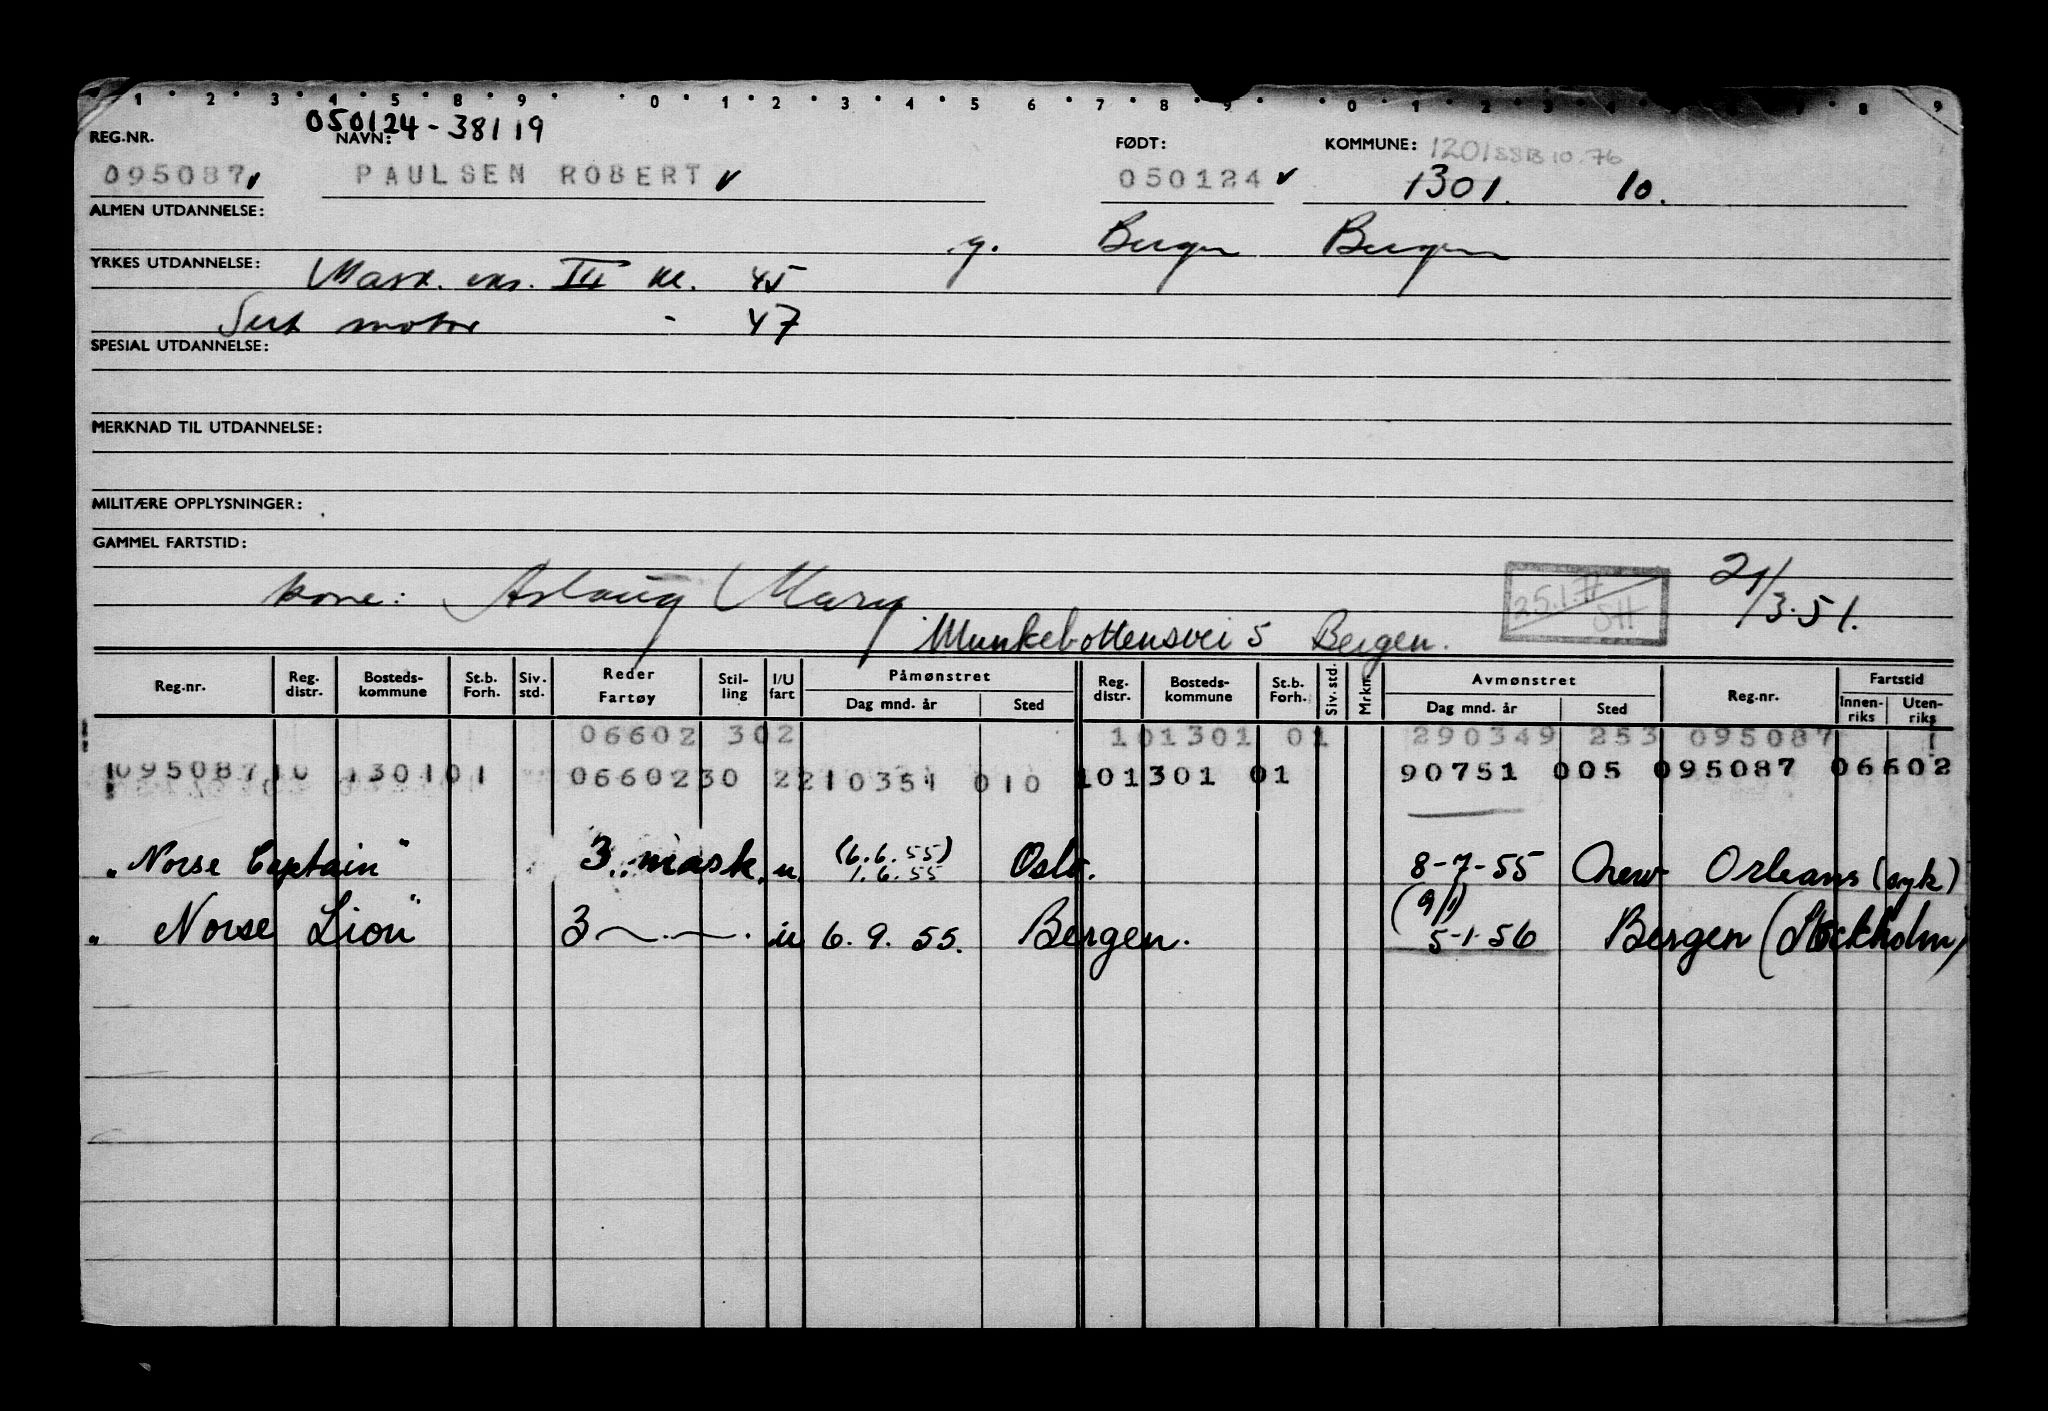 1 2 3 4 5 8 9 0 1 2 3 4 5 6 7 8 9 0 1 2 3 4 7 8 9
050124-38119
REG.NR. NAVN: FØDT: KOMMUNE: 1201 SSB 10.76
095087 PAULSEN ROBERT 050124 1301. 10.
ALMEN UTDANNELSE:
g. Bergen Bergen
YRKES UTDANNELSE: Mask. eks. III kl. 45
Sert motor - 47
SPESIAL UTDANNELSE:
MERKNAD TIL UTDANNELSE:
MILITÆRE OPPLYSNINGER:
GAMMEL FARTSTID:
kone: Aslaug Mary 21/3.51.
Munkebottensvei 5 Bergen.
Reg.nr. Reg. distr. Bosteds-kommune St.b. Forh. Siv. std. Reder Fartøy Stil-ling I/U fart Påmønstret Dag mnd. år Sted Reg. distr. Bosteds-kommune St.b. Forh. Siv. std. Mrkn. Avmønstret Dag mnd. år Sted Reg.nr. Fartstid Innen-riks Uten-riks
06602 302 101301 01 290349 253 095087 1
095087 10 130101 0660230 2210351 010 101301 01 90751 005 095087 06602
"Norse Captain" 3. mask. u. (6.6.55) 1.6.55 Oslo. 8-7-55 New Orleans (syk)
"Norse Lion" 3 —.— u 6.9.55. Bergen. (9/1) 5-1-56 Bergen (Stockholm)